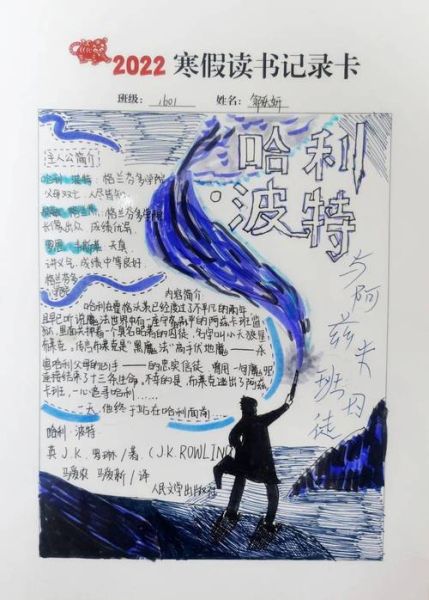 2022 寒假读书记录卡
班级: 1601 姓名:
哈利
·波特
与阿兹卡班囚徒
主人公简介
哈利·波特 格兰芬多学院
父母双亡,人尽皆知
格兰芬多学院
长像出众,成绩优福
罗恩·韦斯莱 天真
讲义气,成绩中等良好,
格兰芬多
学院
内容简介:
哈利在霍格沃茨已经度过了不平凡的两年
且早听说魔法世界中有一座守卫森严的阿兹卡班监
狱,里面关押着一个臭名昭著的囚徒,名字叫小天狼星
布莱克。传言布莱克是"黑魔法"高手伏地魔——杀
害哈利父母的凶手——的忠实信徒,曾用一句魔咒
连接结束了十三条生命。不幸的是,布莱克逃出了阿兹
卡班,一心追寻哈利……
一天,他终于站在哈利面前……
哈利·波特
英 J.K.罗琳/著 (J.K.ROWLING
马爱农 马爱新/译
人民文学出版社